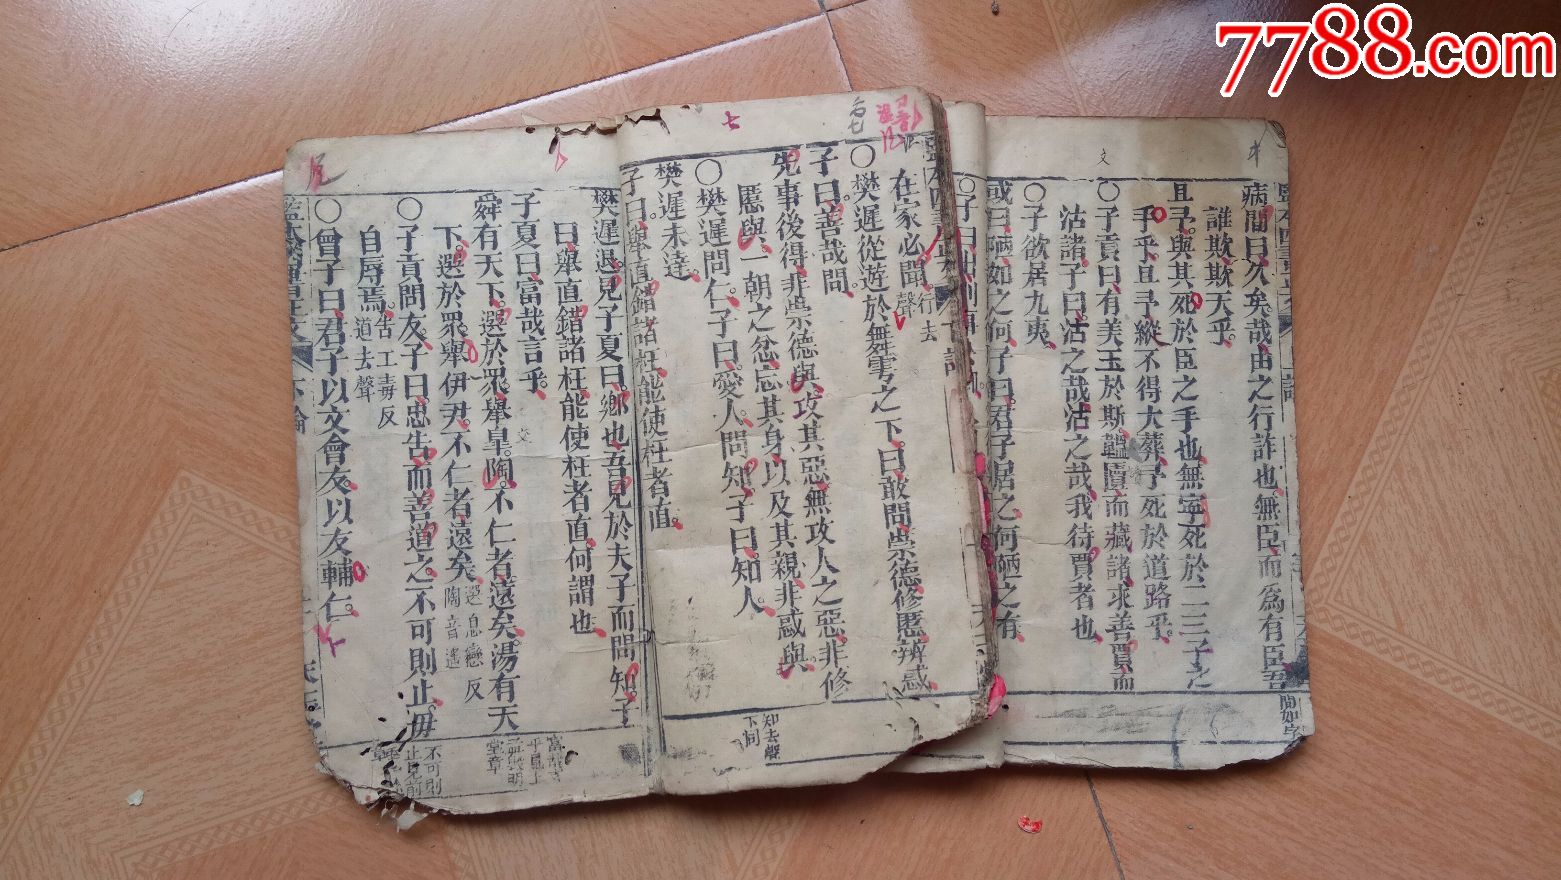 7788.com
病間曰久矣哉由之行詐也無臣而為有臣吾
誰欺欺天乎。
且予與其死於臣之手也無寧死於二三子之
手乎且予縱不得大葬予死於道路乎。
〇子貢曰有美玉於斯韞匵而藏諸求善賈而
沽諸子曰沽之哉沽之哉我待賈者也
〇子欲居九夷。
或曰陋如之何子曰君子居之何陋之有
間如字
在家必聞。聲行去
〇樊遲從遊於舞雩之下。曰敢問崇德修慝辨惑
子曰。善哉問。
先事後得非崇德與攻其惡無攻人之惡。非修
慝與一朝之忿忘其身以及其親非惑與
〇樊遲問仁子曰。愛人。問知子曰。知人。
樊遲未達。
子曰。舉直錯諸枉能使枉者直。
知去聲
下同
樊遲退見子夏曰。鄉也吾見於夫子而問知子
曰舉直錯諸枉能使枉者直何謂也
子夏曰富哉言乎。
舜有天下。選於眾舉皋陶。不仁者遠矣。湯有天
下。選於眾。舉伊尹。不仁者遠矣。選息戀反
陶音遙
〇子貢問友。子曰。忠告而善道之不可則止。毋
自辱焉。告工毒反
道去聲
〇曾子曰君子以文會友以友輔仁。
不可則